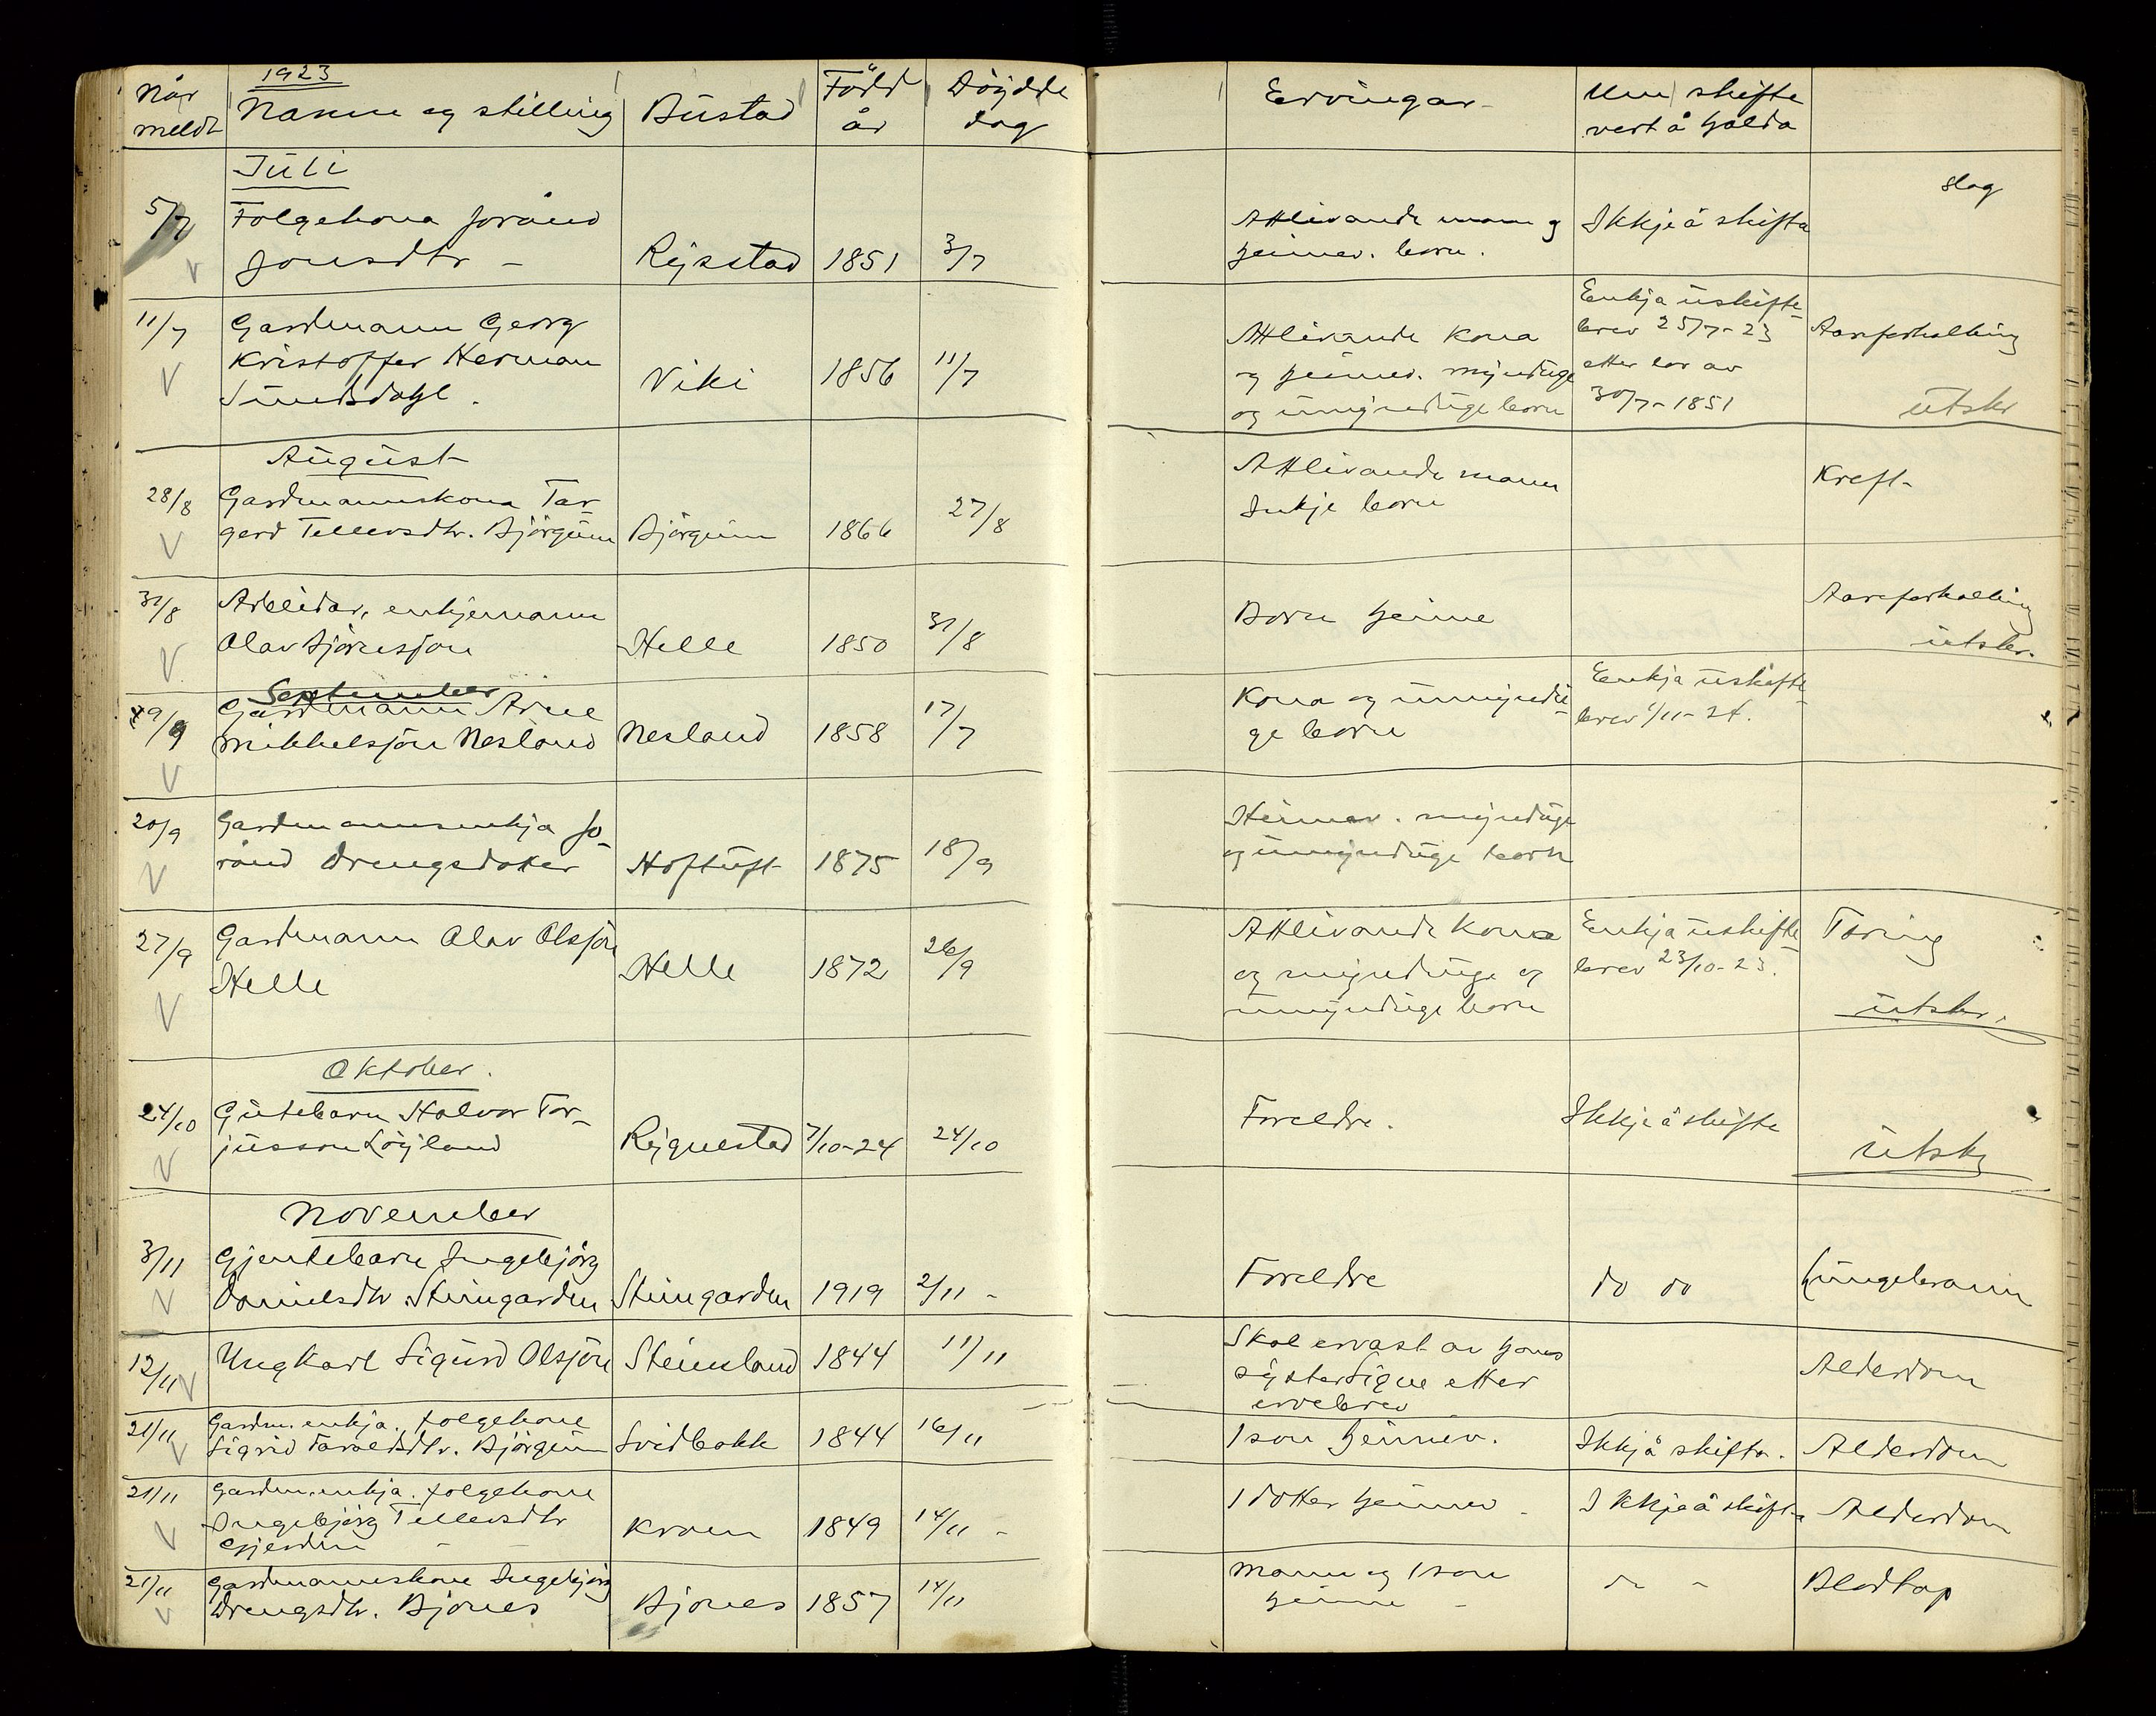 1923
Når meldt
Namn og stilling
Bustad
Född år
Döydde dag
Ervingar
Um skifte vert å halda
Juli
5/7
Folgekona Joränd
Jonsdtr -
Rysstad
1851
3/7
Attlivande mann og
heimev. born.
Ikkje å skifta
slag
11/7
Gardmann Georg
Kristoffer Herman
Sundsdahl.
Viki
1856
11/7
Attlivande kona
og heimev. myndige
og umyndige born
Enkja uskifte-
brev 25/7-23
etter lov av
30/7-1851
Aareforkalking
utskr
August
28/8
Gardmannskona Tar-
gerd Tellevsdtr. Björgum
Björgum
1866
27/8
Attlivande mann
Inkje born
Kreft
31/8
Arbeidar, enkjemann
Olav Björnsson
Helle
1850
31/8
Born heime
Aareforkalking
utskr.
September
19/9
Gardmann Arne
Mikkelsson Nesland
Nesland
1858
17/7
Kona og umyndi-
ge born
Enkja uskifte-
brev 1/11-24.
20/9
Gardmannsenkja Jo-
rånd Drengsdotter
Hoftuft
1875
18/9
Heimev. myndige
og umyndige born
27/9
Gardmann Olav Olsson
Helle
Helle
1872
26/9
Attlivande kona
og myndige og
umyndige born
Enkja uskifte-
brev 23/10-23.
Tæring
utskr.
Oktober.
24/10
Gutebarn Halvor Tor-
jusson Löyland
Rygnestad
7/10-24
24/10
Foreldre.
Ikkje å skifte
utskr
November
3/11
Gjentebarn Ingebjörg
Danielsdtr. Steingarden
Steingarden
1919
2/11 -
Foreldre
do do
Lungebrann
12/11
Ungkarl Sigurd Olsson
Steinsland
1844
11/11
Skal ervast av hans
syster Signe etter
ervebrev
Alderdom
21/11
Gardm. enkja. folgekone
Sigrid Taraldsdtr. Björgum
Svidbakk
1844
16/11
1 son heimev.
Ikkj å skifta.
Alderdom
21/11
Gardm. enkja. folgekone
Ingebjörg Tellevsdtr
Gjerden
Kroen
1849
14/11 -
1 dotter heimev -
Ikkje å skifta
Alderdom
21/11
Gardmannskone Ingebjörg
Drengsdtr. Bjönes
Bjönes
1857
14/11
Mann og 1 son
heime -
do -
Blodtap